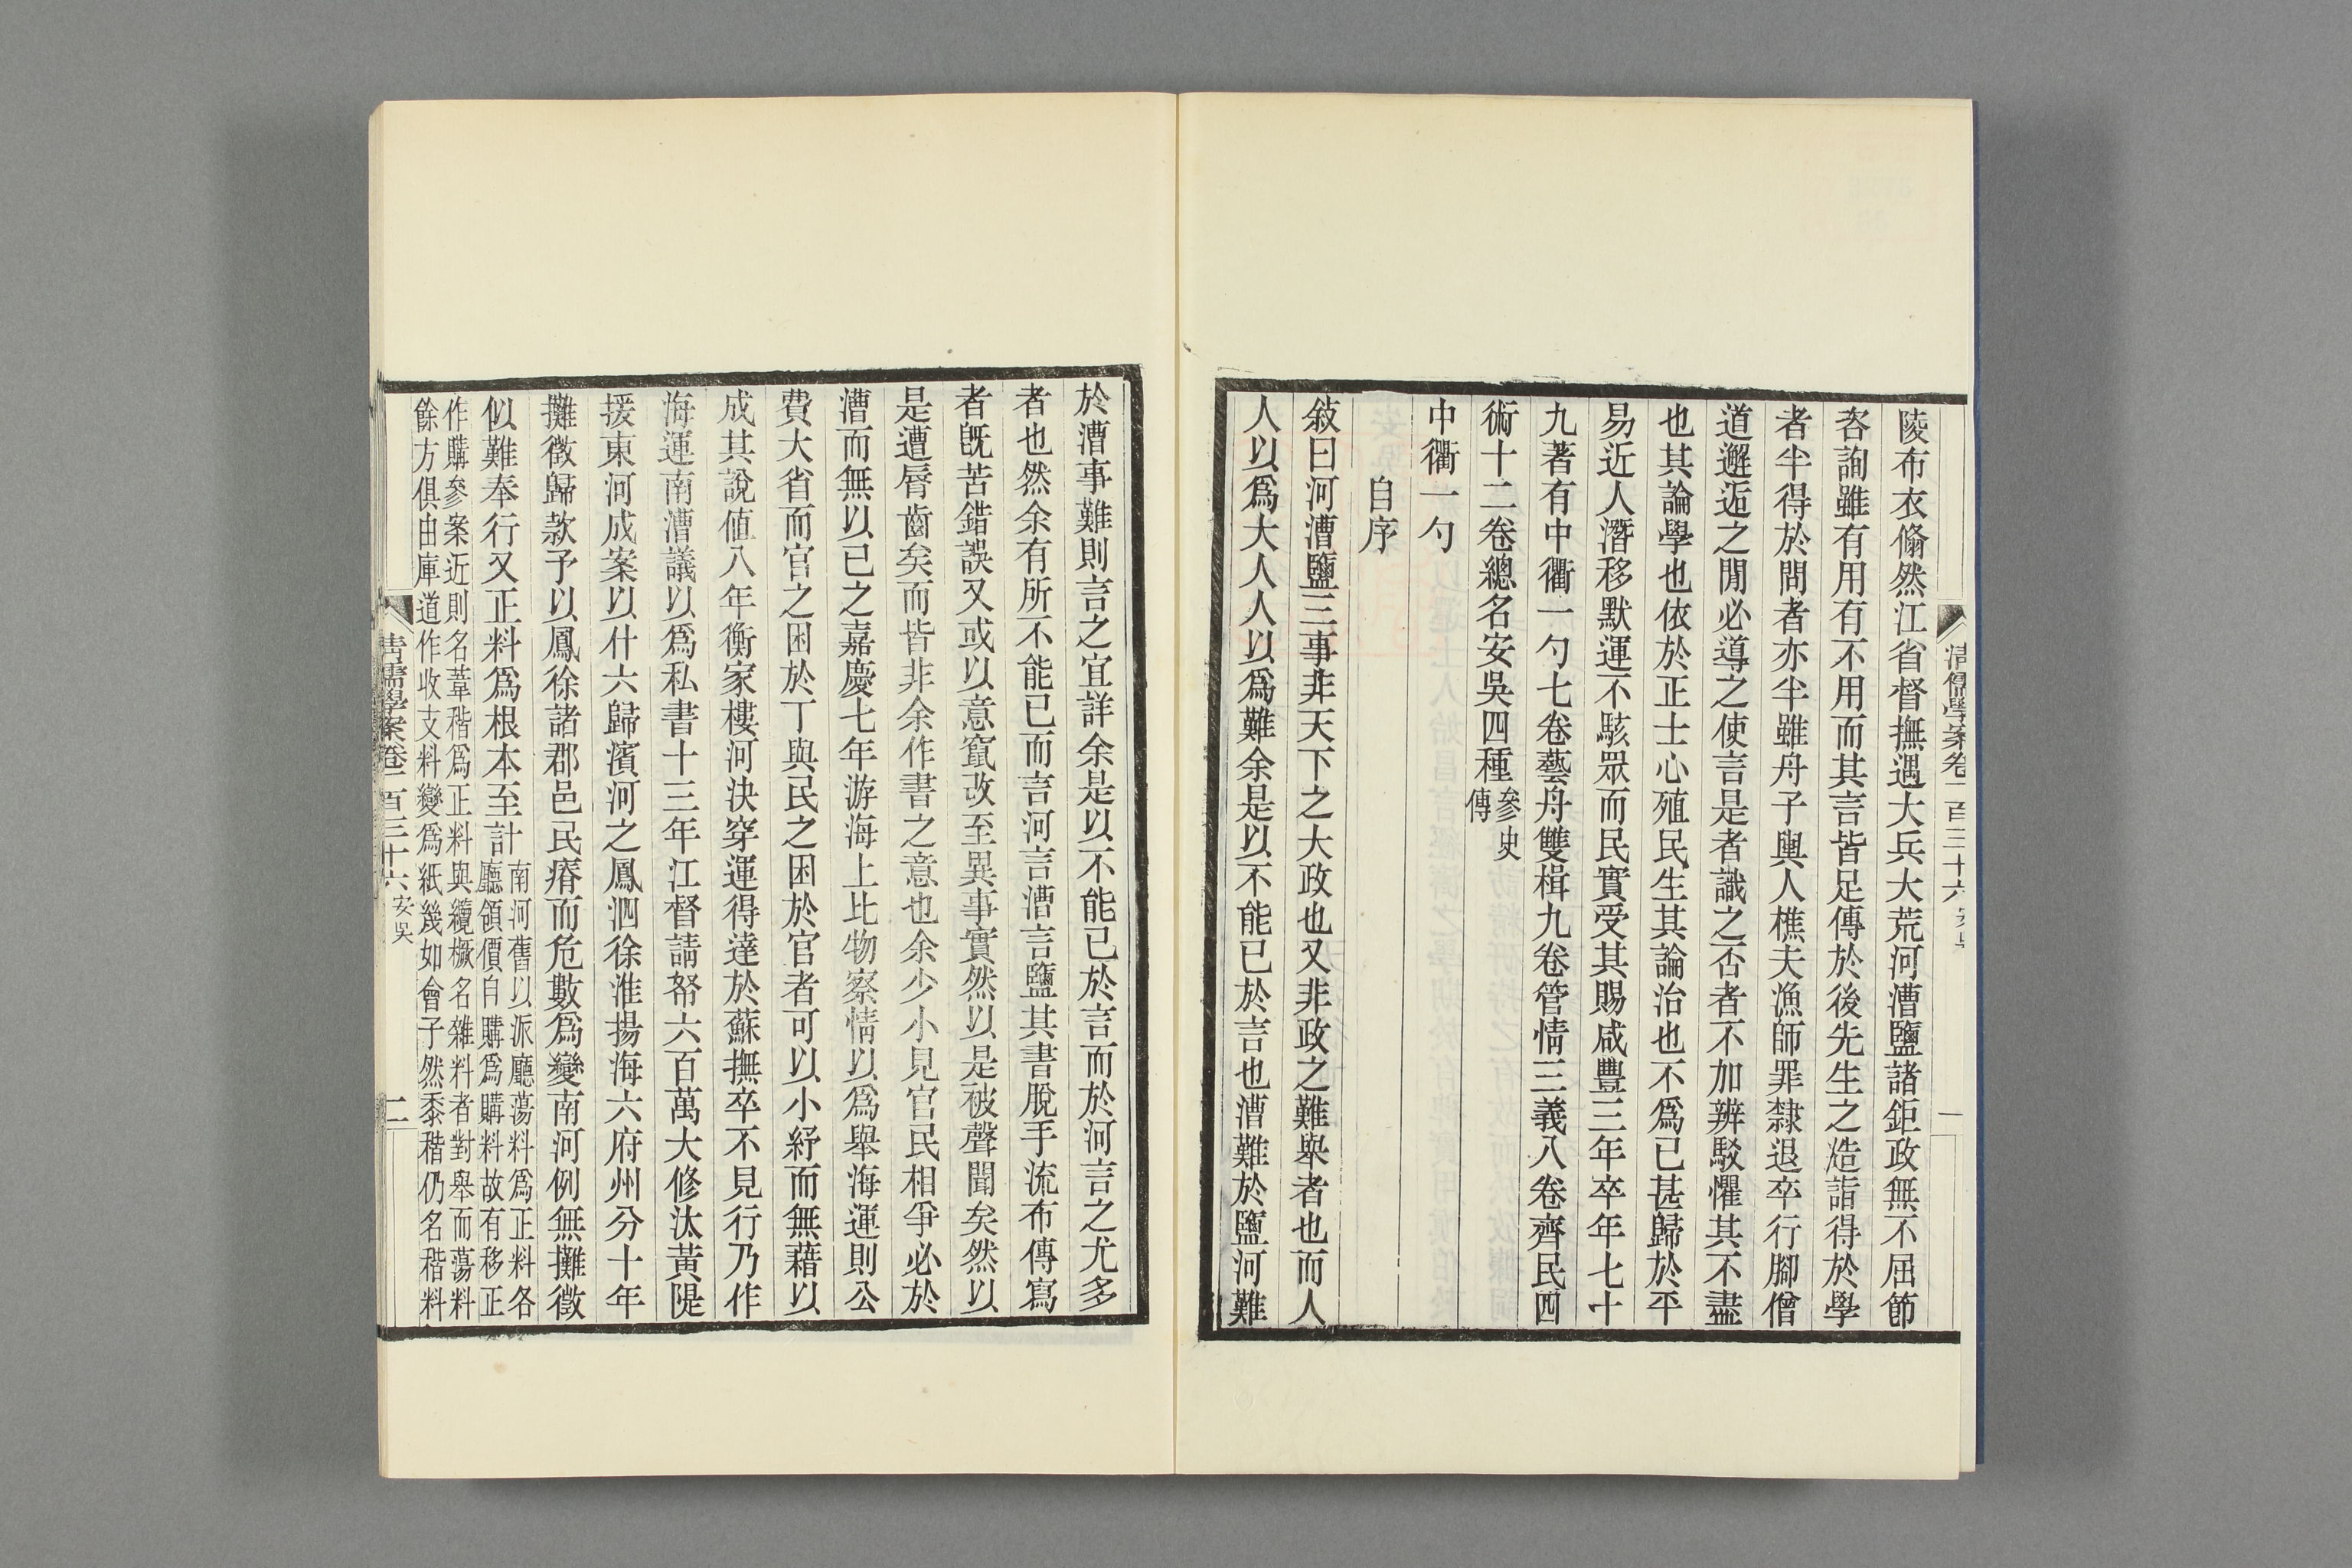 清儒學案卷一百三十六
一
陵布衣翛然江省督撫遇大兵大荒河漕鹽諸鉅政無不屈節
咨詢雖有用有不用而其言皆足傳於後先生之造詣得於學
者半得於問者亦半雖舟子輿人樵夫漁師罪隸退卒行腳僧
道邂逅之閒必導之使言是者識之否者不加辨駁懼其不盡
也其論學也依於正士心殖民生其論治也不爲已甚歸於平
易近人潛移默運不駭眾而民實受其賜咸豐三年卒年七十
九著有中衢一勺七卷藝舟雙楫九卷管情三義八卷齊民四
術十二卷總名安吳四種參史傳
中衢一勺
自序
敍曰河漕鹽三事非天下之大政也又非政之難舉者也而人
人以爲大人人以爲難余是以不能已於言也漕難於鹽河難
於漕事難則言之宜詳余是以不能已於言而於河言之尤多
者也然余有所不能已而言河言漕言鹽其書脫手流布傳寫
者旣苦錯誤又或以意竄改至異事實然以是被聲聞矣然以
是遭脣齒矣而皆非余作書之意也余少小見官民相爭必於
漕而無以已之嘉慶七年游海上比物察情以爲舉海運則公
費大省而官之困於丁與民之困於官者可以小紓而無藉以
成其說値八年衡家樓河決穿運得達於蘇撫卒不見行乃作
海運南漕議以爲私書十三年江督請帑六百萬大修汰黃隄
援東河成案以什六歸濱河之鳳泗徐淮揚海六府州分十年
攤徵歸款予以鳳徐諸郡邑民瘠而危數爲變南河例無攤徵
似難奉行又正料爲根本至計南河舊以派廳蕩料爲正料各
廳領價自購爲購料故有移正
作購參案近則名葦稭爲正料與纜橛名雜料者對舉而蕩料
餘方俱由庫道作收支料變爲紙幾如會子然黍稭仍名稭料
清儒學案卷一百三十六 安吳
二